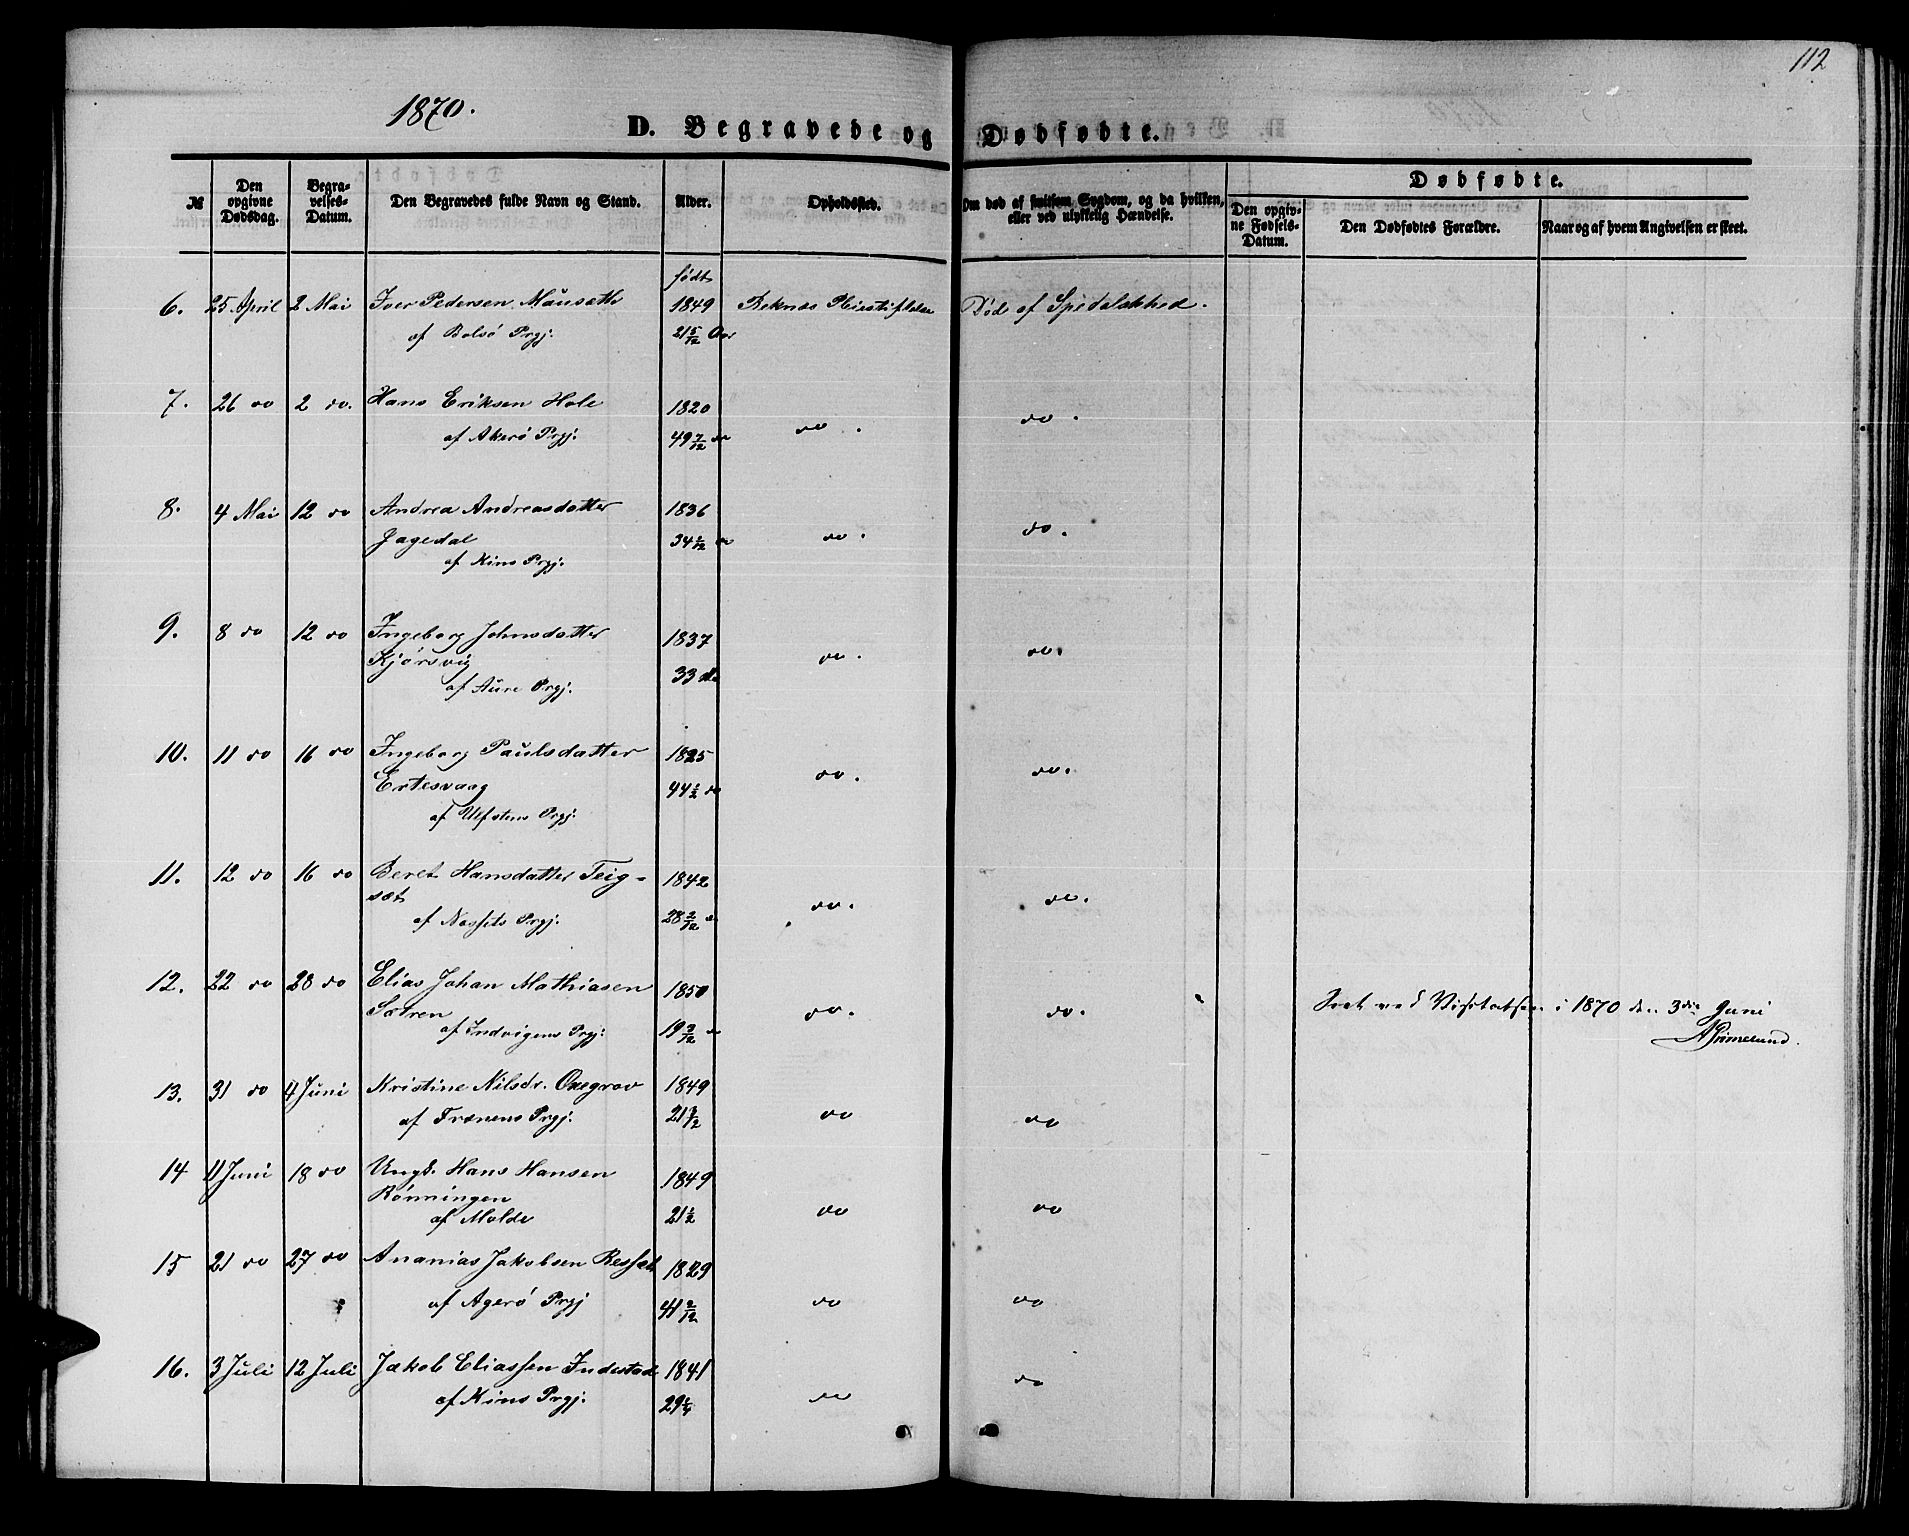 112
1870.
D. Begravede og Dødfødte.
№ | Den opgivne Dødsdag. | Begravelses-Datum. | Den Begravedes fulde Navn og Stand. | Alder. | Opholdssted. | Om død af hvilken Sygdom, og da hvilken, eller ved ulykkelig Hændelse. | Dødfødte. | Den opgivne Fødsels-Datum. | Den Dødfødtes Forældre. | Naar og af hvem Angivelsen er skeet.
født
6. 25 April 2 Mai Iver Pedersen Mauseth 1849 Reknes Død af Spedalskhed.
af Bolsø Prgj. 21 5/12 Aar
7. 26 do 2 do. Hans Eriksen Hole 1820 do. do.
af Akerø Prgj. 49 7/12 do
8. 4 Mai 12 do Andrea Andreasdatter 1836
Jagedal 34 2/12 do do. do.
af Kins Prgj.
9. 8 do 12 do Ingeborg Johnsdatter 1837
Kjørsvig 33 do do. do.
af Aure Prgj.
10. 11 do 16 do Ingeborg Paulsdatter 1825
Ertesvaag 44 1/2 do do. do.
af Ulfstens Prgj.
11. 12 do 16 do Beret Hansdatter Teig- 1842
sæt do. do.
af Nessets Prgj. 28 2/12 do
12. 22 do 28 do Elias Johan Mathiasen 1850
Sætren do. do.
af Indvigens Prgj. 19 2/12 do
Seet ved Visitatsen i 1870 den 3die Juni
13. 31 do 4 Juni Kristine Nilsdr. Oxegrav 1849
af Frænens Prgj. 21 do do
14 11 Juni 18 do Ungk. Hans Hansen 1849
Rønningen
af Molde 21 1/2 do do
15 21 do 27 do Ananias Jakobsen 1829
af Agerø Prgj 41 2/12 do do
16. 3 Juli 12 Juli Jakob Eliassen Indestad 1841 do
af Kins Prgj. 29 do